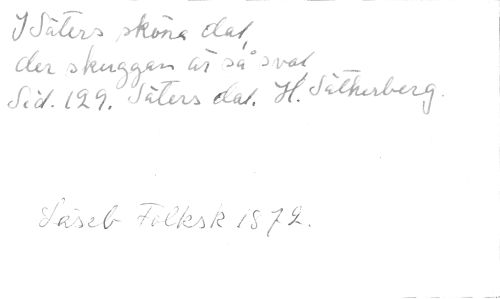 I Säters sköna dal,
der skuggan är så sval,
Sid. 129. Säters dal. H. Sätherberg.
Läseb Folksk 1872.